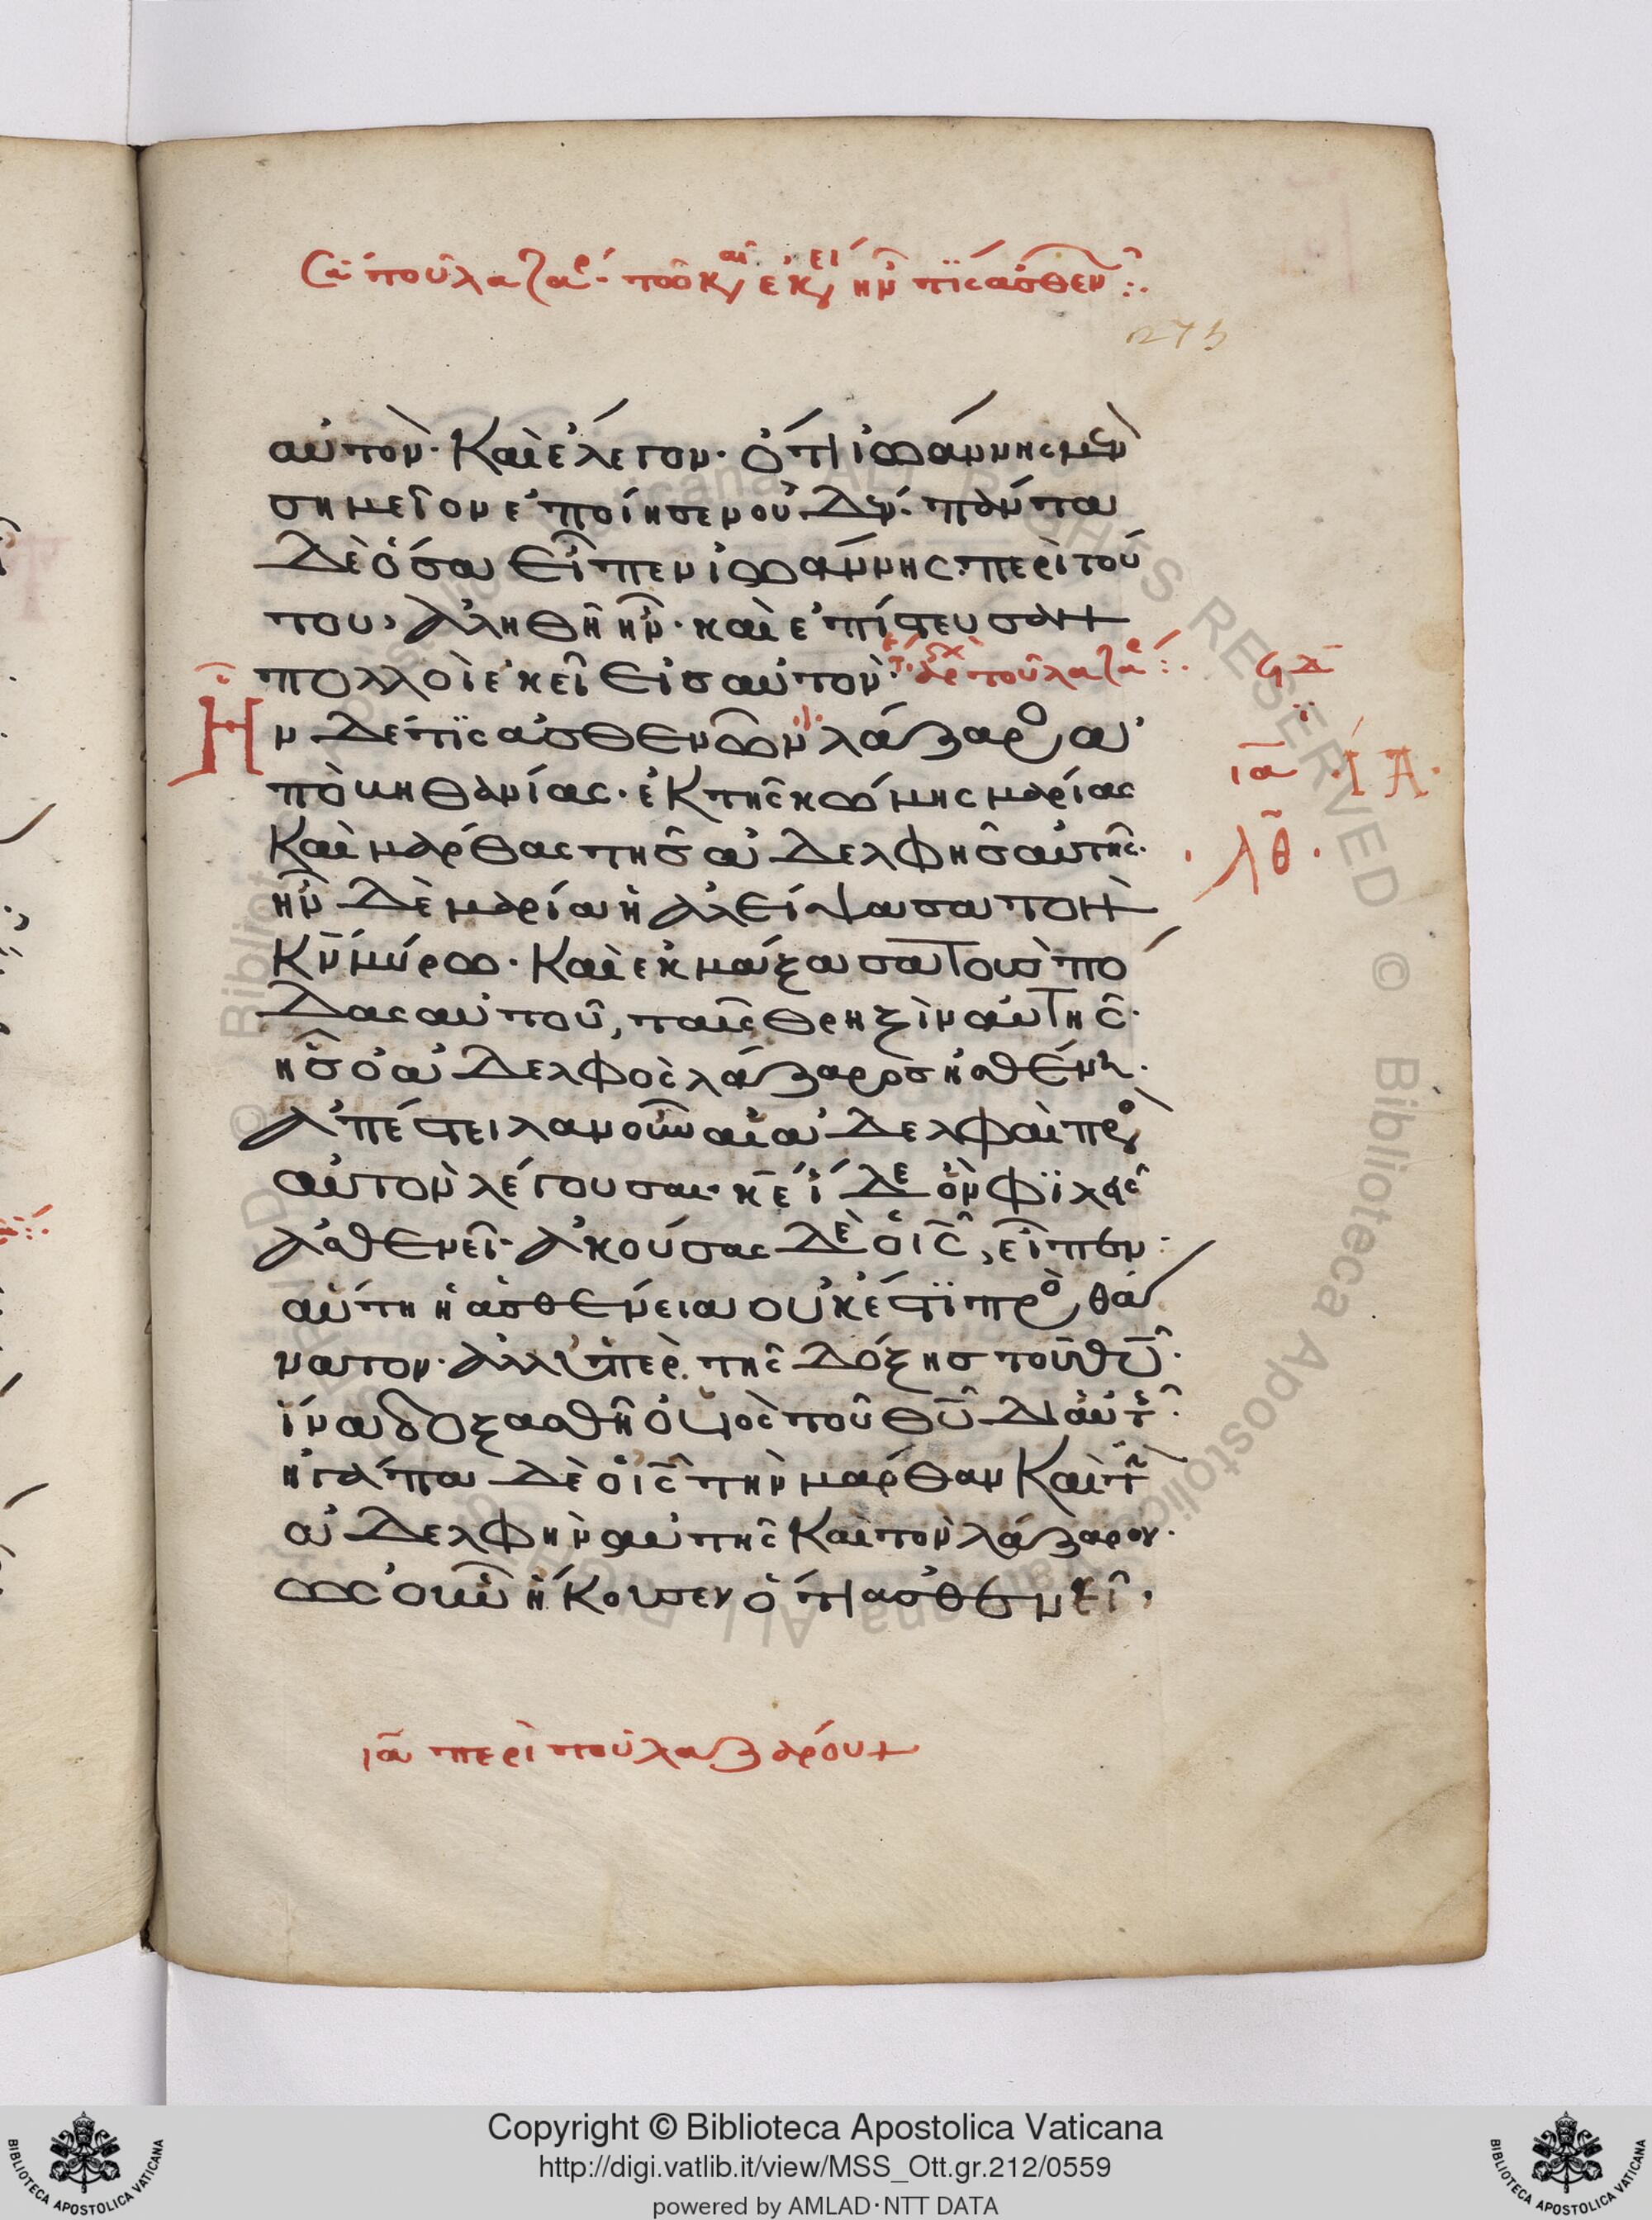 σα του λαζαρ· τω κ εκ ην τις ασθεν :.
275
αὐτόν· Καὶ ἔλεγον· ὅτι ἰωάννης μὲν
σημεῖον ἐποίησεν οὐδέν· πάντα
Δὲ ὅσα εἶπεν ἰωάννης περὶ τού
του, ἀληθῆ ἦν· καὶ ἐπίστευσαν
πολλοὶ ἐκεῖ εἰσ αὐτόν· του λαζα :.
Ην Δέ τις ἀσθενῶν λάζαρος ἀ
πὸ βηθανίας· ἐκ τῆς κώμης μαρίας
Καὶ μάρθας τῆς ἀδελφῆς αὐτῆς·
ἦν Δὲ μαρία ἡ ἀλείψασα τὸν
Κν μύρω· Καὶ ἐκμάξασα τοὺς πό
Δας αὐτοῦ, ταῖς θριξὶν αὐτῆς·
ἧς ὁ ἀδελφὸς λάζαρος ἠσθένει·
Ἀπέστειλαν οὖν αἱ ἀδελφαὶ πρὸς
αὐτὸν λέγουσαι· κε ἴδε ὃν φιλεῖς
ἀσθενεῖ· Ἀκούσας Δὲ ὁ ις, εἶπεν:
αὕτη ἡ ἀσθένεια οὐκ ἔστι πρὸς θά
νατον· ἀλλ ὑπὲρ τῆς Δόξης τοῦ θυ·
ἵνα δοξασθῆ ὁ υἱὸς τοῦ θυ Δι αὐτῆς·
ἠγάπα Δὲ ὁ ις τὴν μάρθαν Καὶ τὴν
ἀδελφὴν αὐτῆς Καὶ τὸν λάζαρον·
ὡς οὖν ἤκουσεν ὅτι ἀσθενεῖ·
ϟδ
ι
ια ·ΙΑ·
·λθ·
ια περὶ τοῦ λαζάρου +
Copyright © Biblioteca Apostolica Vaticana
http://digi.vatlib.it/view/MSS_Ott.gr.212/0559
powered by AMLAD·NTT DATA
BIBLIOTECA APOSTOLICA VATICANA
BIBLIOTECA APOSTOLICA VATICANA